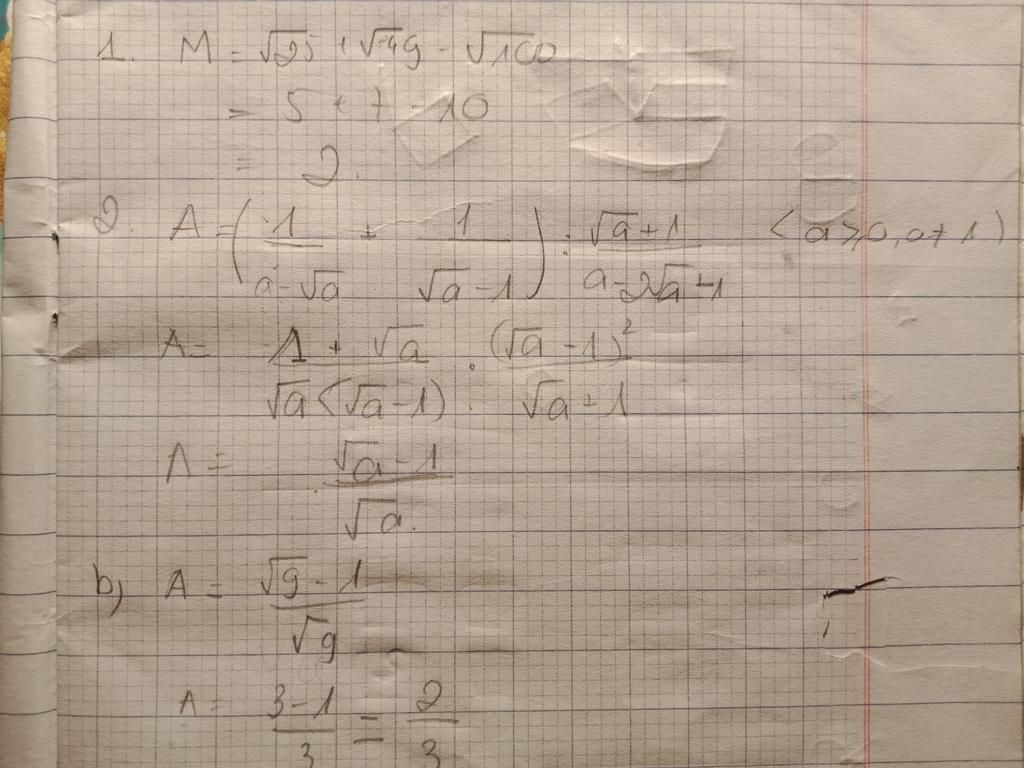 1. M = √25 + √49 - √100
= 5 + 7 - 10
= 2.
2. A = (1/(a-√a) + 1/(√a-1)) : (√a+1)/(a-2√a+1) (a>0, a≠1)
A = (1+√a)/(√a(√a-1)) : (√a-1)²/(√a+1)
A = (√a-1)/√a.
b) A = (√9-1)/√9
A = (3-1)/3 = 2/3